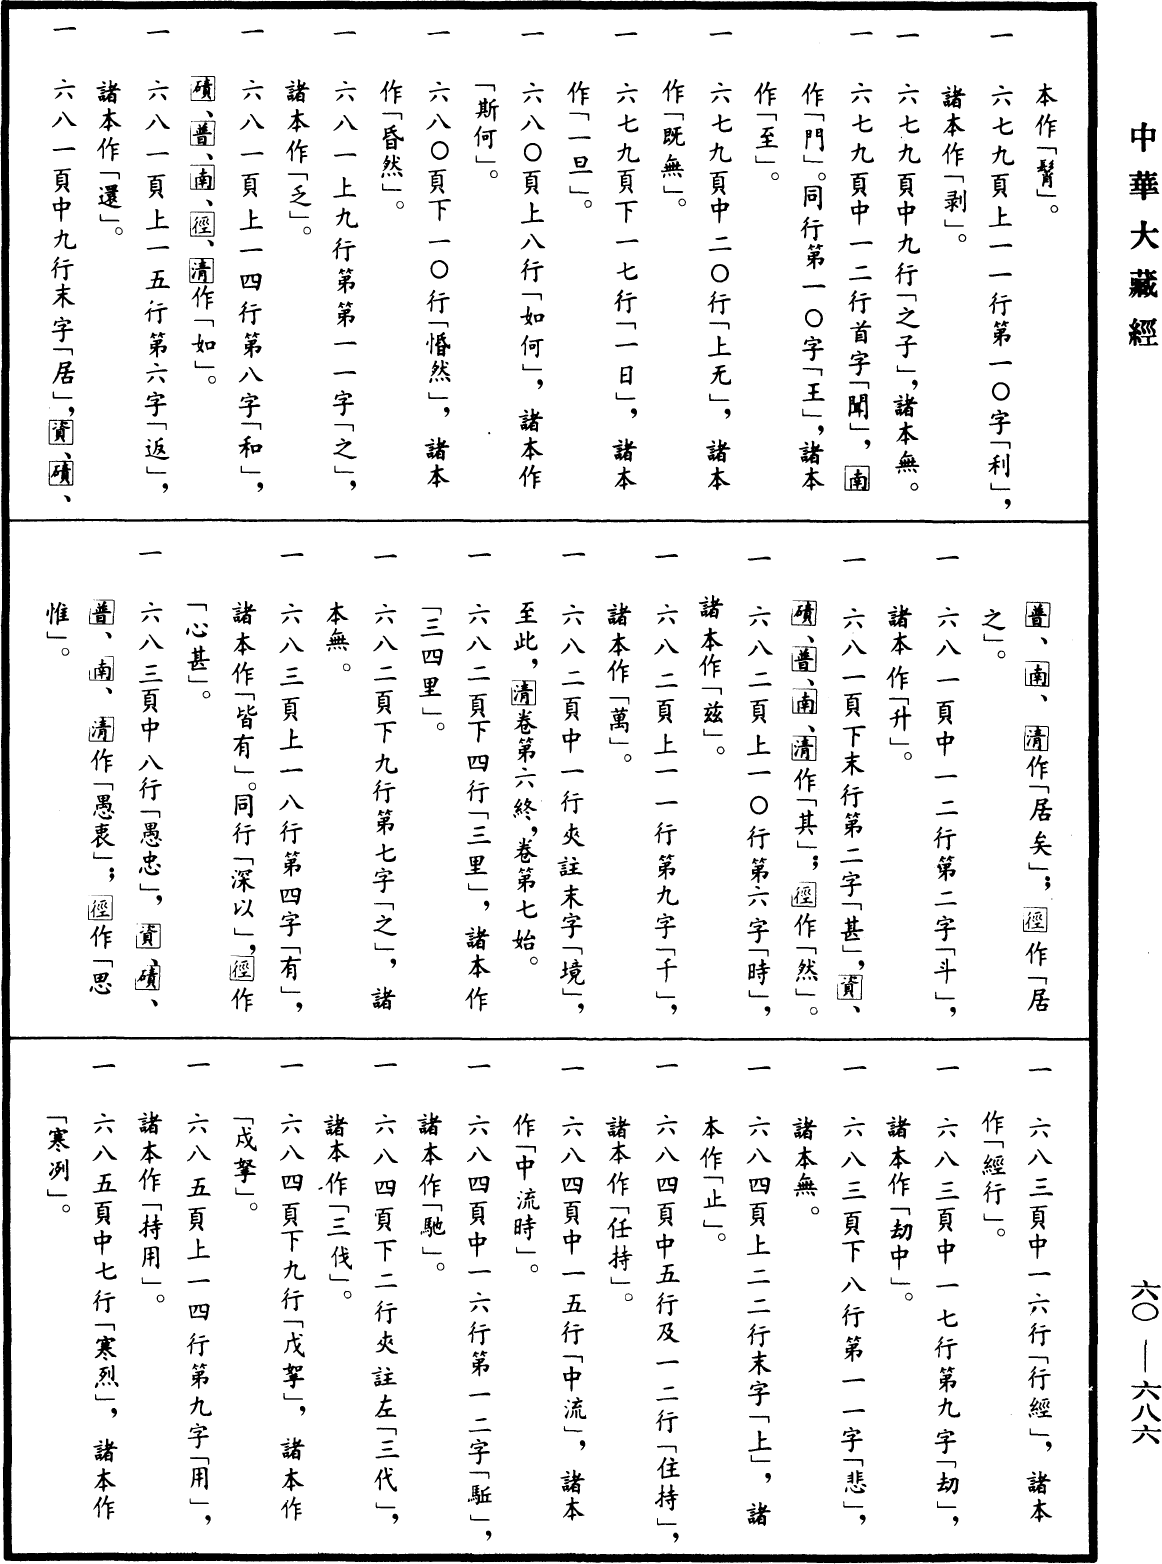 中華大藏經
本作「髯」。
一　六七九頁上一一行第一〇字「利」，
諸本作「剥」。
一　六七九頁中九行「之子」，諸本無。
一　六七九頁中一二行首字「聞」，南
作「門」。同行第一〇字「王」，諸本
作「至」。
一　六七九頁中二〇行「上无」，諸本
作「既無」。
一　六七九頁下一七行「一日」，諸本
作「一旦」。
一　六八〇頁上八行「如何」，諸本作
「斯何」。
一　六八〇頁下一〇行「惛然」，諸本
作「昏然」。
一　六八一上九行第第一一字「之」，
諸本作「乏」。
一　六八一頁上一四行第八字「和」，
磧、普、南、徑、清作「如」。
一　六八一頁上一五行第六字「返」，
諸本作「還」。
一　六八一頁中九行末字「居」，資、磧、
普、南、清作「居矣」；徑作「居
之」。
一　六八一頁中一二行第二字「斗」，
諸本作「升」。
一　六八一頁下末行第二字「甚」，資、
磧、普、南、清作「其」；徑作「然」。
一　六八二頁上一〇行第六字「時」，
諸本作「兹」。
一　六八二頁上一一行第九字「千」，
諸本作「萬」。
一　六八二頁中一行夾註末字「境」，
至此，清卷第六終，卷第七始。
一　六八二頁下四行「三里」，諸本作
「三四里」。
一　六八二頁下九行第七字「之」，諸
本無。
一　六八三頁上一八行第四字「有」，
諸本作「皆有」。同行「深以」，徑作
「心甚」。
一　六八三頁中八行「愚忠」，資、磧、
普、南、清作「愚衷」；徑作「思
惟」。
一　六八三頁中一六行「行經」，諸本
作「經行」。
一　六八三頁中一七行第九字「刧」，
諸本作「劫中」。
一　六八三頁下八行第一一字「悲」，
諸本無。
一　六八四頁上二二行末字「上」，諸
本作「止」。
一　六八四頁中五行及一二行「住持」，
諸本作「任持」。
一　六八四頁中一五行「中流」，諸本
作「中流時」。
一　六八四頁中一六行第一二字「駈」，
諸本作「馳」。
一　六八四頁下二行夾註左「三代」，
諸本作「三伐」。
一　六八四頁下九行「戊拏」，諸本作
「戍拏」。
一　六八五頁上一四行第九字「用」，
諸本作「持用」。
一　六八五頁中七行「寒烈」，諸本作
「寒冽」。
六〇——六八六